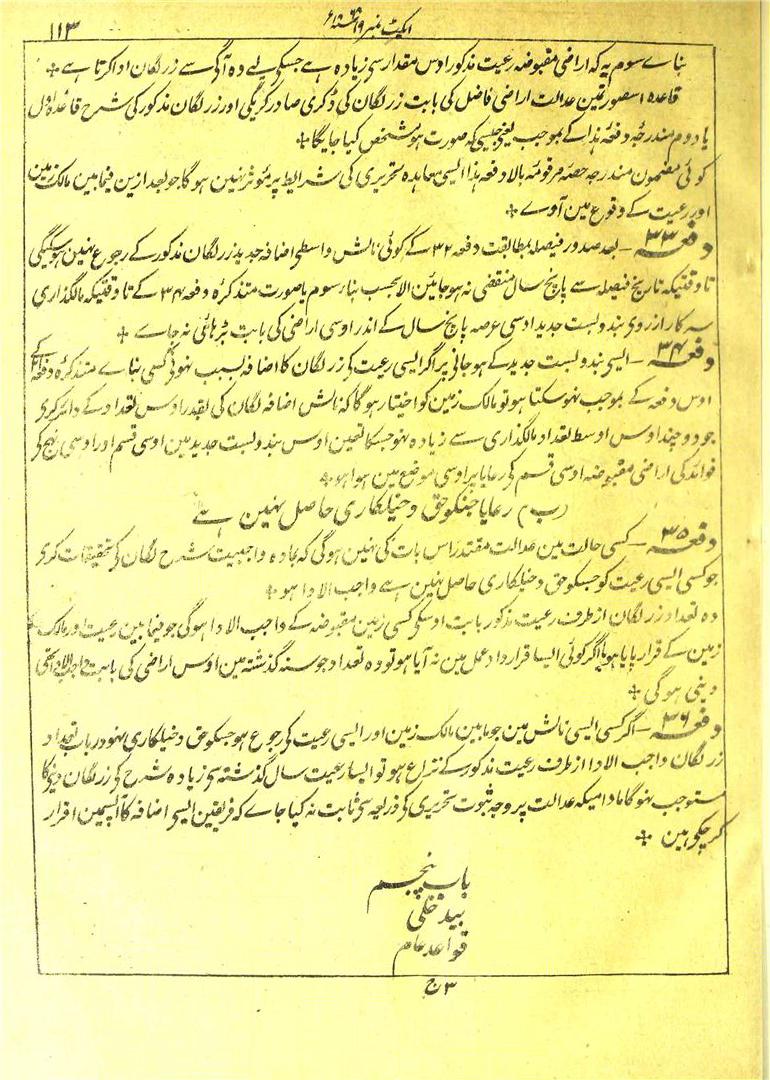 ۱۱۳
ایکٹ نمبر ۱۹
بناے سوم یہ کہ اراضی مقبوضہ رعیت مذکور اوس مقدار سی زیادہ ہے جسکی لیے وہ آگی سے زر لگان ادا کرتا ہے ✤
قاعدہ اسصورتمین عدالت اراضی فاضل کی بابت زر لگان کی ڈگری صادر کریگی اور زر لگان مذکور کی شرح قاعدہ اول
یا دوم مندرجہ دفعہ ہذا کے بموجب یعنی جیسی کہ صورت ہو مشخص کیا جایگا ✤
کوئی مضمون مندرجہ حصہ مرقومہ بالا دفعہ ہذا ایسی معاہدہ تحریری کی شرایط پر موثر نہین ہوگا جو بعد ازین فیمابین مالک زمین
اور رعیت کے وقوع مین آوے ✤
دفعہ ۳۳ – بعد صدور فیصلہ بمطابقت دفعہ ۳۲ کے کوئی نالش واسطی اضافہ جدید زر لگان مذکور کے رجوع نہین ہو سکیگی
تا وقتیکہ تاریخ فیصلہ سے پانچ سال منقضی نہ ہو جائین الا بحسب بناء سوم یا صورت متذکرہ دفعہ ۳۴ کے تا وقتیکہ مالگذاری
سرکار ازروی بندوبست جدید اوسی عرصہ پانچ سال کے اندر اوسی اراضی کی بابت بڑہائی نہ جاے ✤
دفعہ ۳۴ – ایسی بندوبست جدید کے ہو جانی پر اگر ایسی رعیت کی زر لگان کا اضافہ بسبب نہونی کسی بناے متذکرہ دفعہ
اوس دفعہ کے بموجب نہو سکتا ہو تو مالک زمین کو اختیار ہوگا کہ نالش اضافہ لگان کی بقدر اوس تعداد کے دائر کری
جو دو چند اوس اوسط تعداد مالگذاری سے زیادہ نہو جسکا تعین اوس بندوبست جدید مین اوسی قسم اور اوسی نہج کی
فوائد کی اراضی مقبوضہ اوسی قسم کی رعایا پر اوسی موضع مین ہوا ہو ✤
(ب) رعایا جنکو حق دخیلکاری حاصل نہین ہے
دفعہ ۳۵ – کسی حالت مین عدالت مقتدر اس بات کی نہین ہوگی کہ مادہ واجبیت شرح لگان کی تحقیقات کری
جو کسی ایسی رعیت کو جسکو حق دخیلکاری حاصل نہین ہے واجب الادا ہو ✤
وہ تعداد زر لگان از طرف رعیت مذکور بابت اوسکی کسی زمین مقبوضہ کے واجب الادا ہوگی جو فیمابین رعیت اور مالک
زمین کے قرار پایا ہو یا اگر کوئی ایسا قرارداد عمل مین نہ آیا ہو تو وہ تعداد جو سنہ گذشتہ مین اوس اراضی کی بابت واجب الادا تھی
دینی ہوگی ✤
دفعہ ۳۶ – اگر کسی ایسی نالش مین جو مابین مالک زمین اور ایسی رعیت کی رجوع ہو جسکو حق دخیلکاری نہو درباب تعداد
زر لگان واجب الادا از طرف رعیت مذکور کے نزاع ہو تو ایسا رعیت سال گذشتہ سی زیادہ شرح کی زر لگان دینی کا
مستوجب نہوگا مادامیکہ عدالت پر وجہ ثبوت تحریری کی ذریعہ سی ثابت نہ کیا جاے کہ فریقین ایسی اضافہ کا آپسمین اقرار
کر چکی ہین ✤
باب پنجم
بیدخلی
قواعد عام
ج ۳